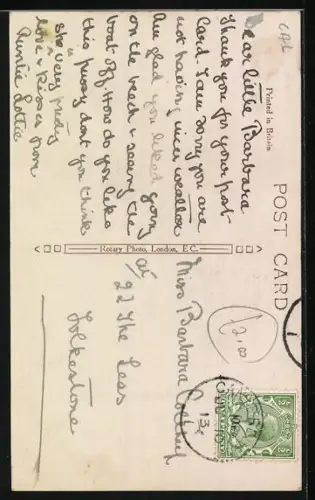 CAL
Dear little Barbara
Thank you for your post
Card. I am sorry you are
not having nicer weather
Am glad you liked going
on the beach & seeing the
boat off. How do you like
this pussy dont you think
she is very pretty
love & kisses from
Auntie Lottie
Printed in Britain
POST CARD
Rotary Photo, London, E.C.
Miss Barbara
at
22 The Leas
Folkestone
£2.00
13